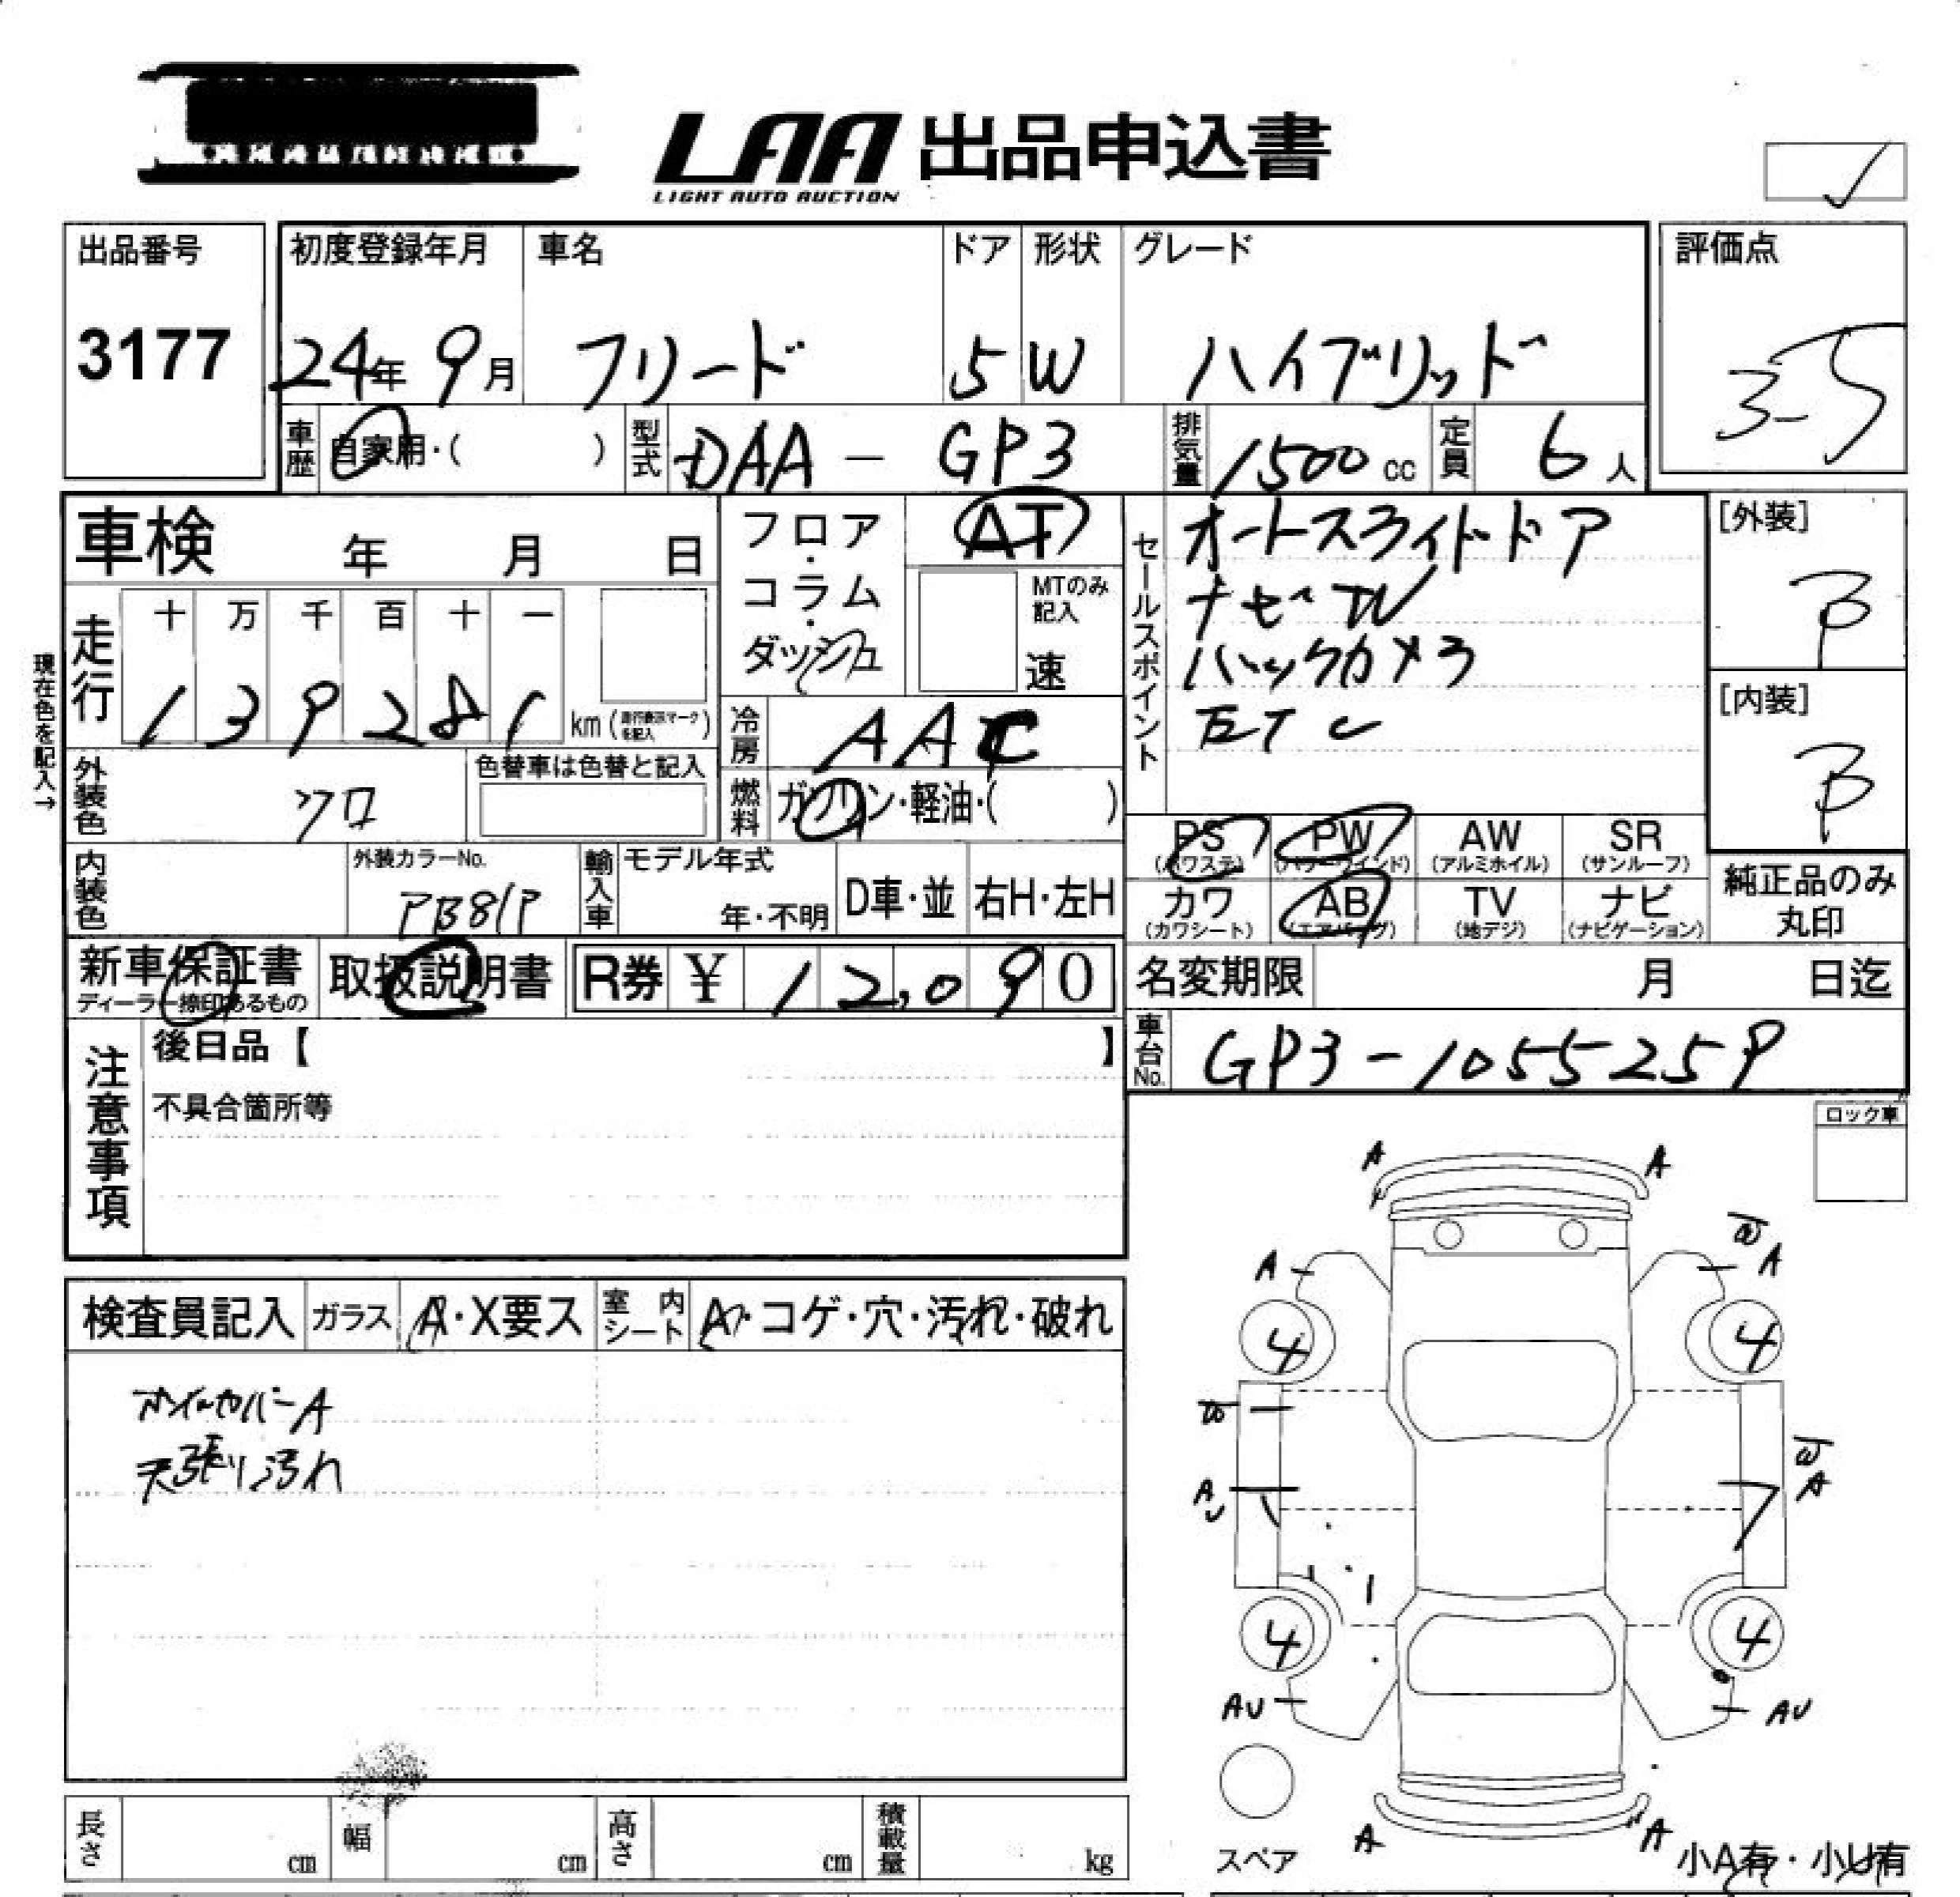 LAA 出品申込書
LIGHT AUTO AUCTION
出品番号
3177
初度登録年月
24年 9月
車名
フリード
ドア
5
形状
W
グレード
ハイブリッド
評価点
3.5
車歴
自家用・( )
型式
DAA - GP3
排気量
1500 cc
定員
6 人
車検 年 月 日
フロア・コラム・ダッシュ
AT
MTのみ記入
速
セールスポイント
オートスライドドア
ナビTV
バックカメラ
ETC
[外装]
B
[内装]
B
現在色を記入→
走行
十 万 千 百 十 一
1 3 9 2 8 1 km (走行表示マークを記入)
冷房
AAC
外装色
クロ
色替車は色替と記入
燃料
ガソリン・軽油・( )
PS (パワステ)
PW (パワーウインド)
AW (アルミホイル)
SR (サンルーフ)
カワ (カワシート)
AB (エアバッグ)
TV (地デジ)
ナビ (ナビゲーション)
純正品のみ
丸印
内装色
外装カラーNo.
PB81P
輸入車
モデル年式
年・不明
D車・並
右H・左H
新車保証書
ディーラー捺印あるもの
取扱説明書
R券 ¥ 12,090
名変期限 月 日迄
車台No.
GP3-1055259
注意事項
後日品【 】
不具合箇所等
ロック車
検査員記入
ガラス
A・X要ス
室内シート
A・コゲ・穴・汚れ・破れ
ホイルカバーA
天張り汚れ
A A
A A
4 4
A
A
4 4
AU AU
スペア
A A
小A有・小U有
長さ cm
幅 cm
高さ cm
積載量 kg